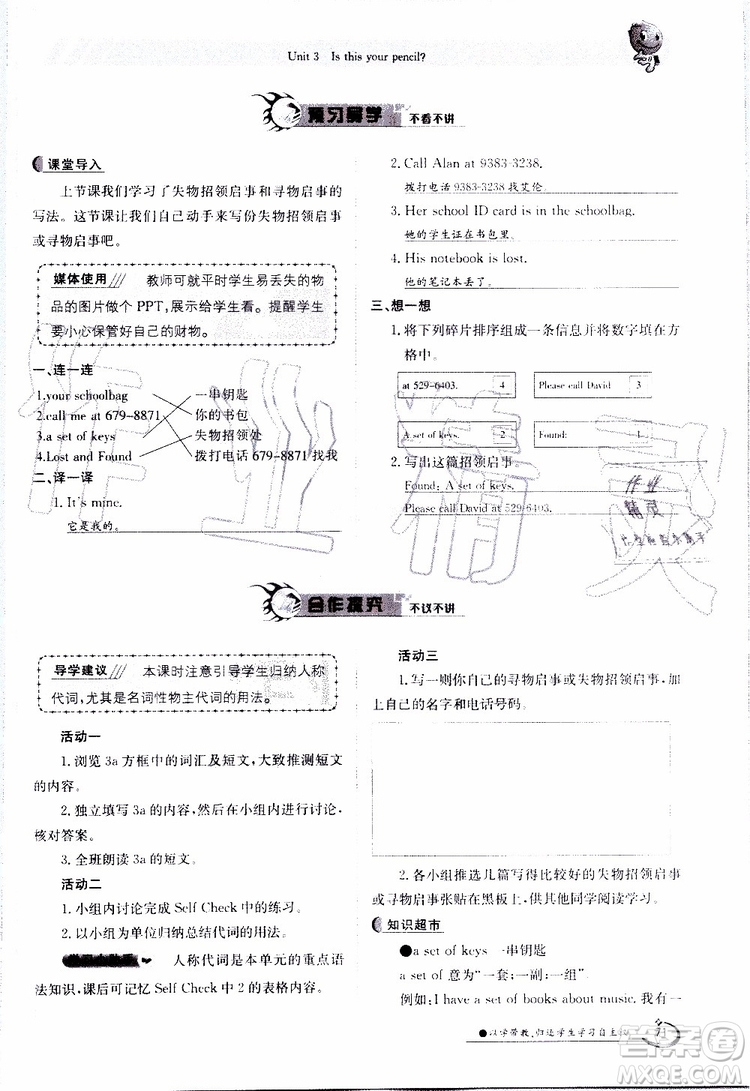 Unit 3 Is this your pencil?
预习导学 不看不讲
课堂导入
上节课我们学习了失物招领启事和寻物启事的
写法。这节课让我们自己动手来写份失物招领启事
或寻物启事吧。
媒体使用 教师可就平时学生易丢失的物
品的图片做个 PPT,展示给学生看。提醒学生
要小心保管好自己的财物。
一、连一连
1.your schoolbag 一串钥匙
2.call me at 679-8871 你的书包
3.a set of keys 失物招领处
4.Lost and Found 拨打电话 679-8871 找我
二、译一译
1. It's mine.
它是我的。
2. Call Alan at 9383-3238.
拨打电话 9383-3238 找艾伦。
3. Her school ID card is in the schoolbag.
她的学生证在书包里。
4. His notebook is lost.
他的笔记本丢了。
三、想一想
1. 将下列碎片排序组成一条信息并将数字填在方
格中。
at 529-6403. 4 Please call David 3
A set of keys. 2 Found: 1
2. 写出这篇招领启事。
Found: A set of keys.
Please call David at 529-6403.
作业
精灵
合作探究 不议不讲
导学建议 本课时注意引导学生归纳人称
代词,尤其是名词性物主代词的用法。
活动一
1. 浏览 3a 方框中的词汇及短文,大致推测短文
的内容。
2. 独立填写 3a 的内容,然后在小组内进行讨论,
核对答案。
3. 全班朗读 3a 的短文。
活动二
1. 小组内讨论完成 Self Check 中的练习。
2. 以小组为单位归纳总结代词的用法。
人称代词是本单元的重点语
法知识,课后可记忆 Self Check 中 2 的表格内容。
活动三
1. 写一则你自己的寻物启事或失物招领启事,加
上自己的名字和电话号码。
2. 各小组推选几篇写得比较好的失物招领启事
或寻物启事张贴在黑板上,供其他同学阅读学习。
知识超市
●a set of keys 一串钥匙
a set of 意为“一套;一副;一组”。
例如:I have a set of books about music. 我有一
●以学带教,归还学生学习自主
作业精灵
答案圈
MXQE.COM